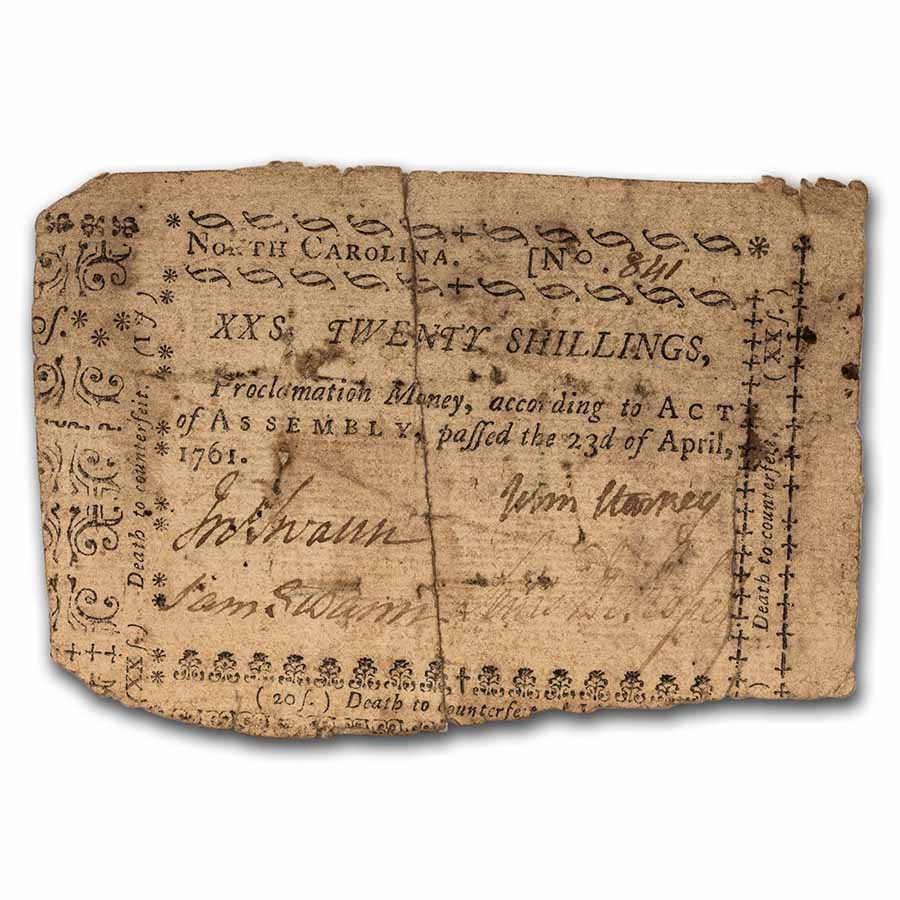 NORTH CAROLINA. [No. 841
XXS. TWENTY SHILLINGS,
Proclamation Money, according to ACT
of ASSEMBLY, paſſed the 23d of April,
1761.
Jno Swann
Sam Swann
(20ſ.) Death to counterfeit
Death to counterfeit.
XXſ.)
(XXſ.)
Death to counterfeit.